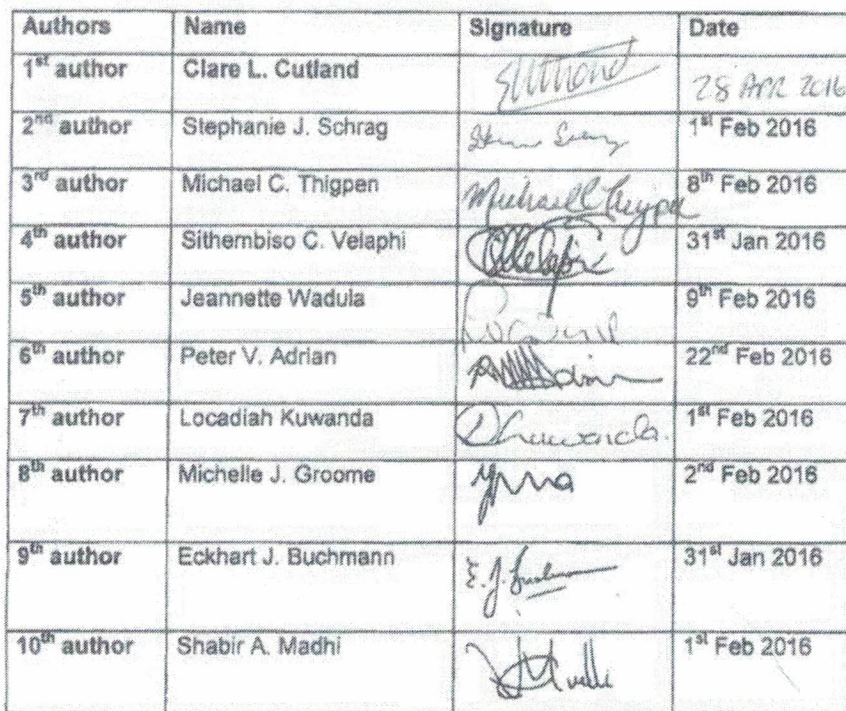 Authors Name Signature Date
1st author Clare L. Cutland 28 APR 2016
2nd author Stephanie J. Schrag 1st Feb 2016
3rd author Michael C. Thigpen Michael Thigpen 8th Feb 2016
4th author Sithembiso C. Velaphi 31st Jan 2016
5th author Jeannette Wadula 9th Feb 2016
6th author Peter V. Adrian 22nd Feb 2016
7th author Locadiah Kuwanda 1st Feb 2016
8th author Michelle J. Groome 2nd Feb 2016
9th author Eckhart J. Buchmann 31st Jan 2016
10th author Shabir A. Madhi 1st Feb 2016